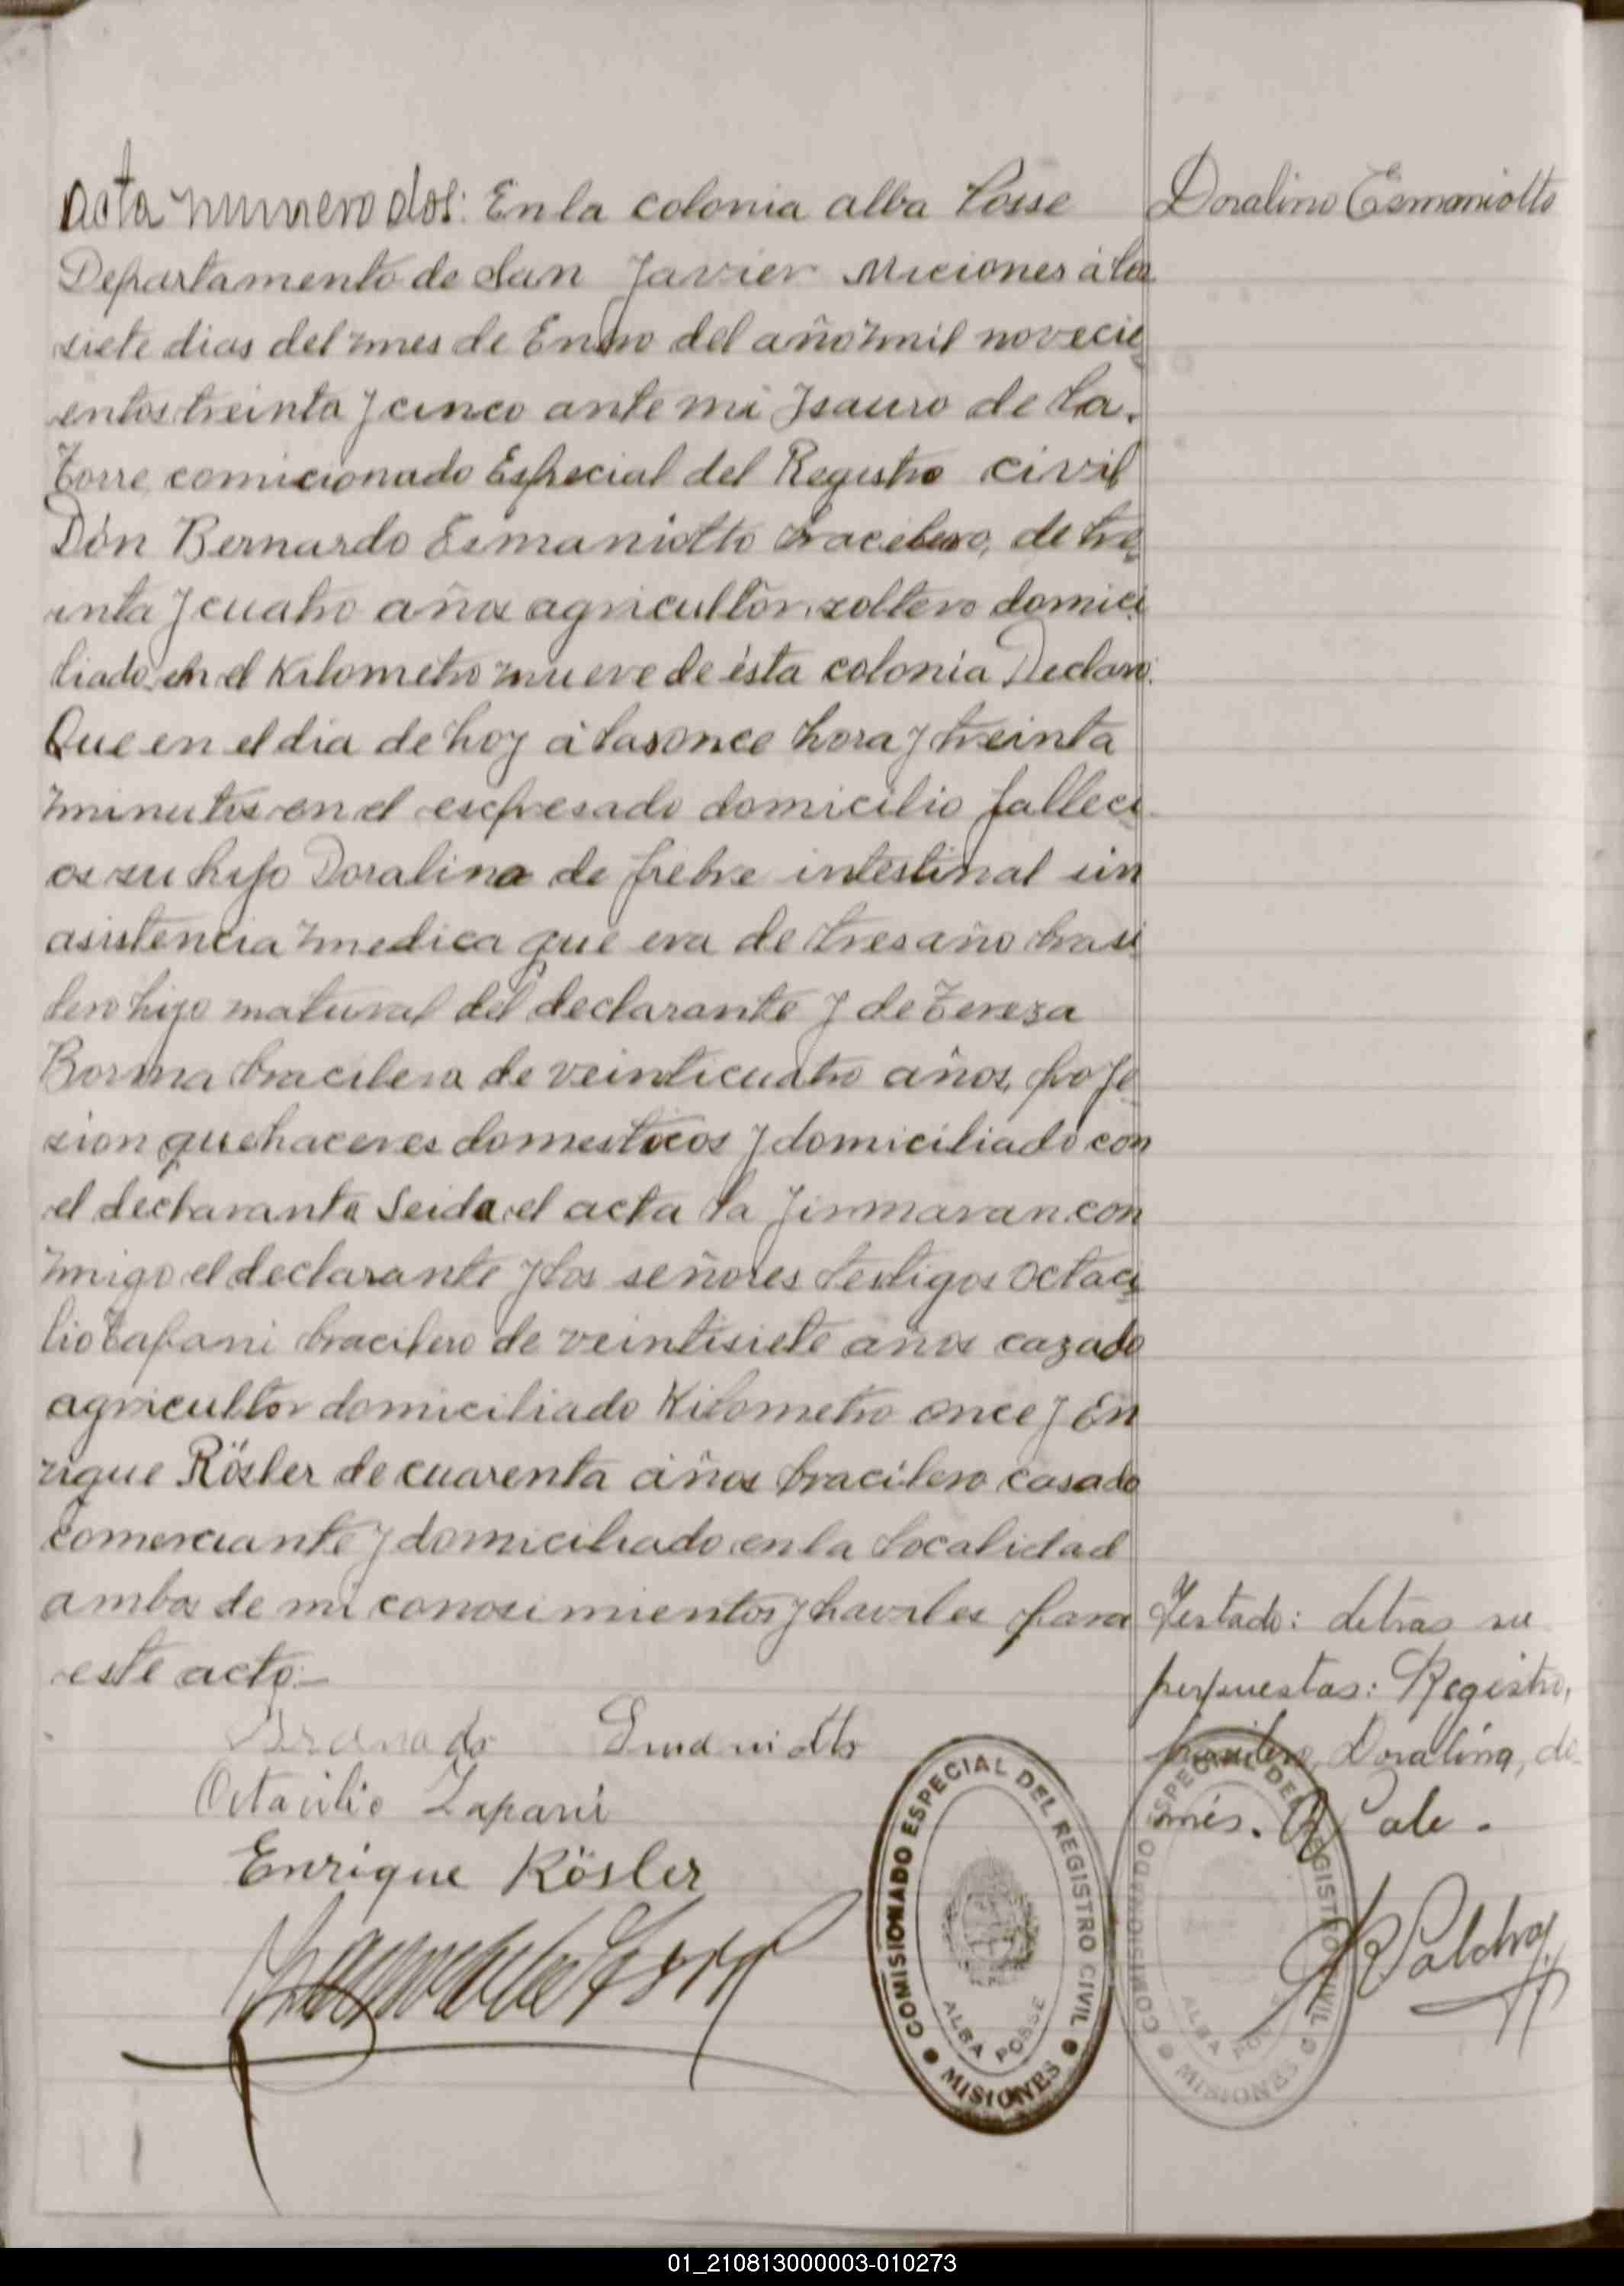 Acta numero dos: En la colonia alba Posse
Doralino Esmaniotto
Departamento de San Javier Miciones á los
siete dias del mes de Enero del año mil novecie
entos treinta y cinco ante mi Isauro de La.
Torre comicionado Especial del Registro civil
Dón Bernardo Esmaniotto bracilero, de tre
inta y cuatro años agricultor soltero domici
liado en el Kilometro nueve de ésta colonia Declaro:
Que en el dia de hoy á las once hora y treinta
minutos en el escpresado domicilio falleci
os su hijo Doralina de fiebre intestinal sin
asistencia medica que era de tres año brasi
lero hijo natural del declarante y de Tereza
Borma bracilera de veinticuatro años, profe
sion quehaceres domesticos y domiciliado con
el declarante Leida el acta la firmaran con
migo el declarante y los señores testigos Octaci
lio Zapani bracilero de veintisiete años cazado
agricultor domiciliado Kilometro once y En
rique Rösler de cuarenta años bracilero casado
comerciante y domiciliado en la localidad
ambos de mi conosimientos y haviles para
este acto:—
Testado: letras su
perpuestas: Registro,
brasilero, Doralina, do
més. Vale.
Esmaniotto
Octacilio Zapani
Enrique Rösler
COMISIONADO ESPECIAL DEL REGISTRO CIVIL
ALBA POSSE
MISIONES
COMISIONADO ESPECIAL DEL REGISTRO CIVIL
ALBA POSSE
MISIONES
01_210813000003-010273